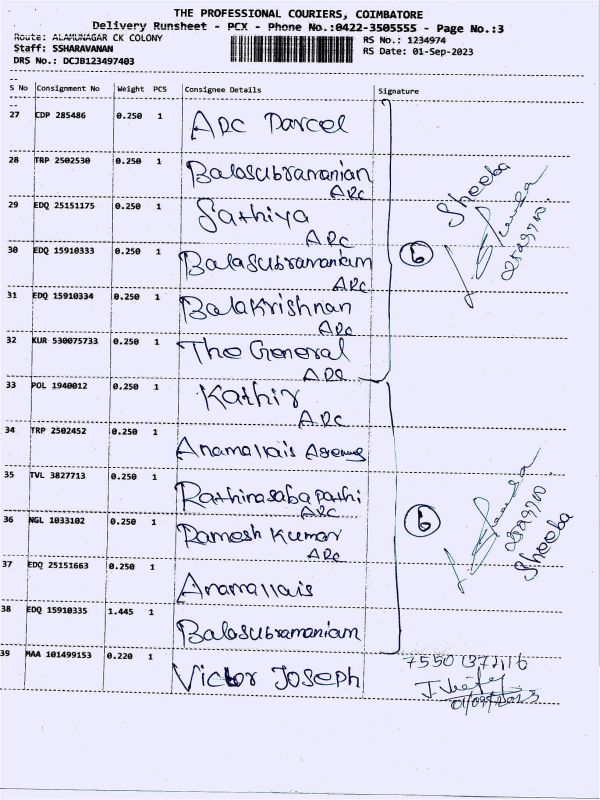 THE PROFESSIONAL COURIERS, COIMBATORE
Delivery Runsheet - PCX - Phone No.:0422-3505555 - Page No.:3
Route: ALAMUNAGAR CK COLONY
RS No.: 1234974
Staff: SSHARAVANAN
RS Date: 01-Sep-2023
DRS No.: DCJB123497403
S No Consignment No Weight PCS Consignee Details Signature
27 CDP 285486 0.250 1 ARC Parcel
28 TRP 2502530 0.250 1 Balasubramanian
ARC
29 EDQ 25151175 0.250 1 Sathiya
ARC
30 EDQ 15910333 0.250 1 Balasubramaniam
ARC
31 EDQ 15910334 0.250 1 Balakrishnan
ARC
32 KUR 530075733 0.250 1 The General
ARC
6
Sheeba
33 POL 1940012 0.250 1 Kathir
ARC
34 TRP 2502452 0.250 1 Anamallais
35 TVL 3827713 0.250 1 Rathinasabapathi
ARC
36 NGL 1033102 0.250 1 Ramesh Kumar
ARC
37 EDQ 25151663 0.250 1 Anamallais
38 EDQ 15910335 1.445 1 Balasubramaniam
6
Sheeba
39 MAA 101499153 0.220 1 Victor Joseph
01/09/2023